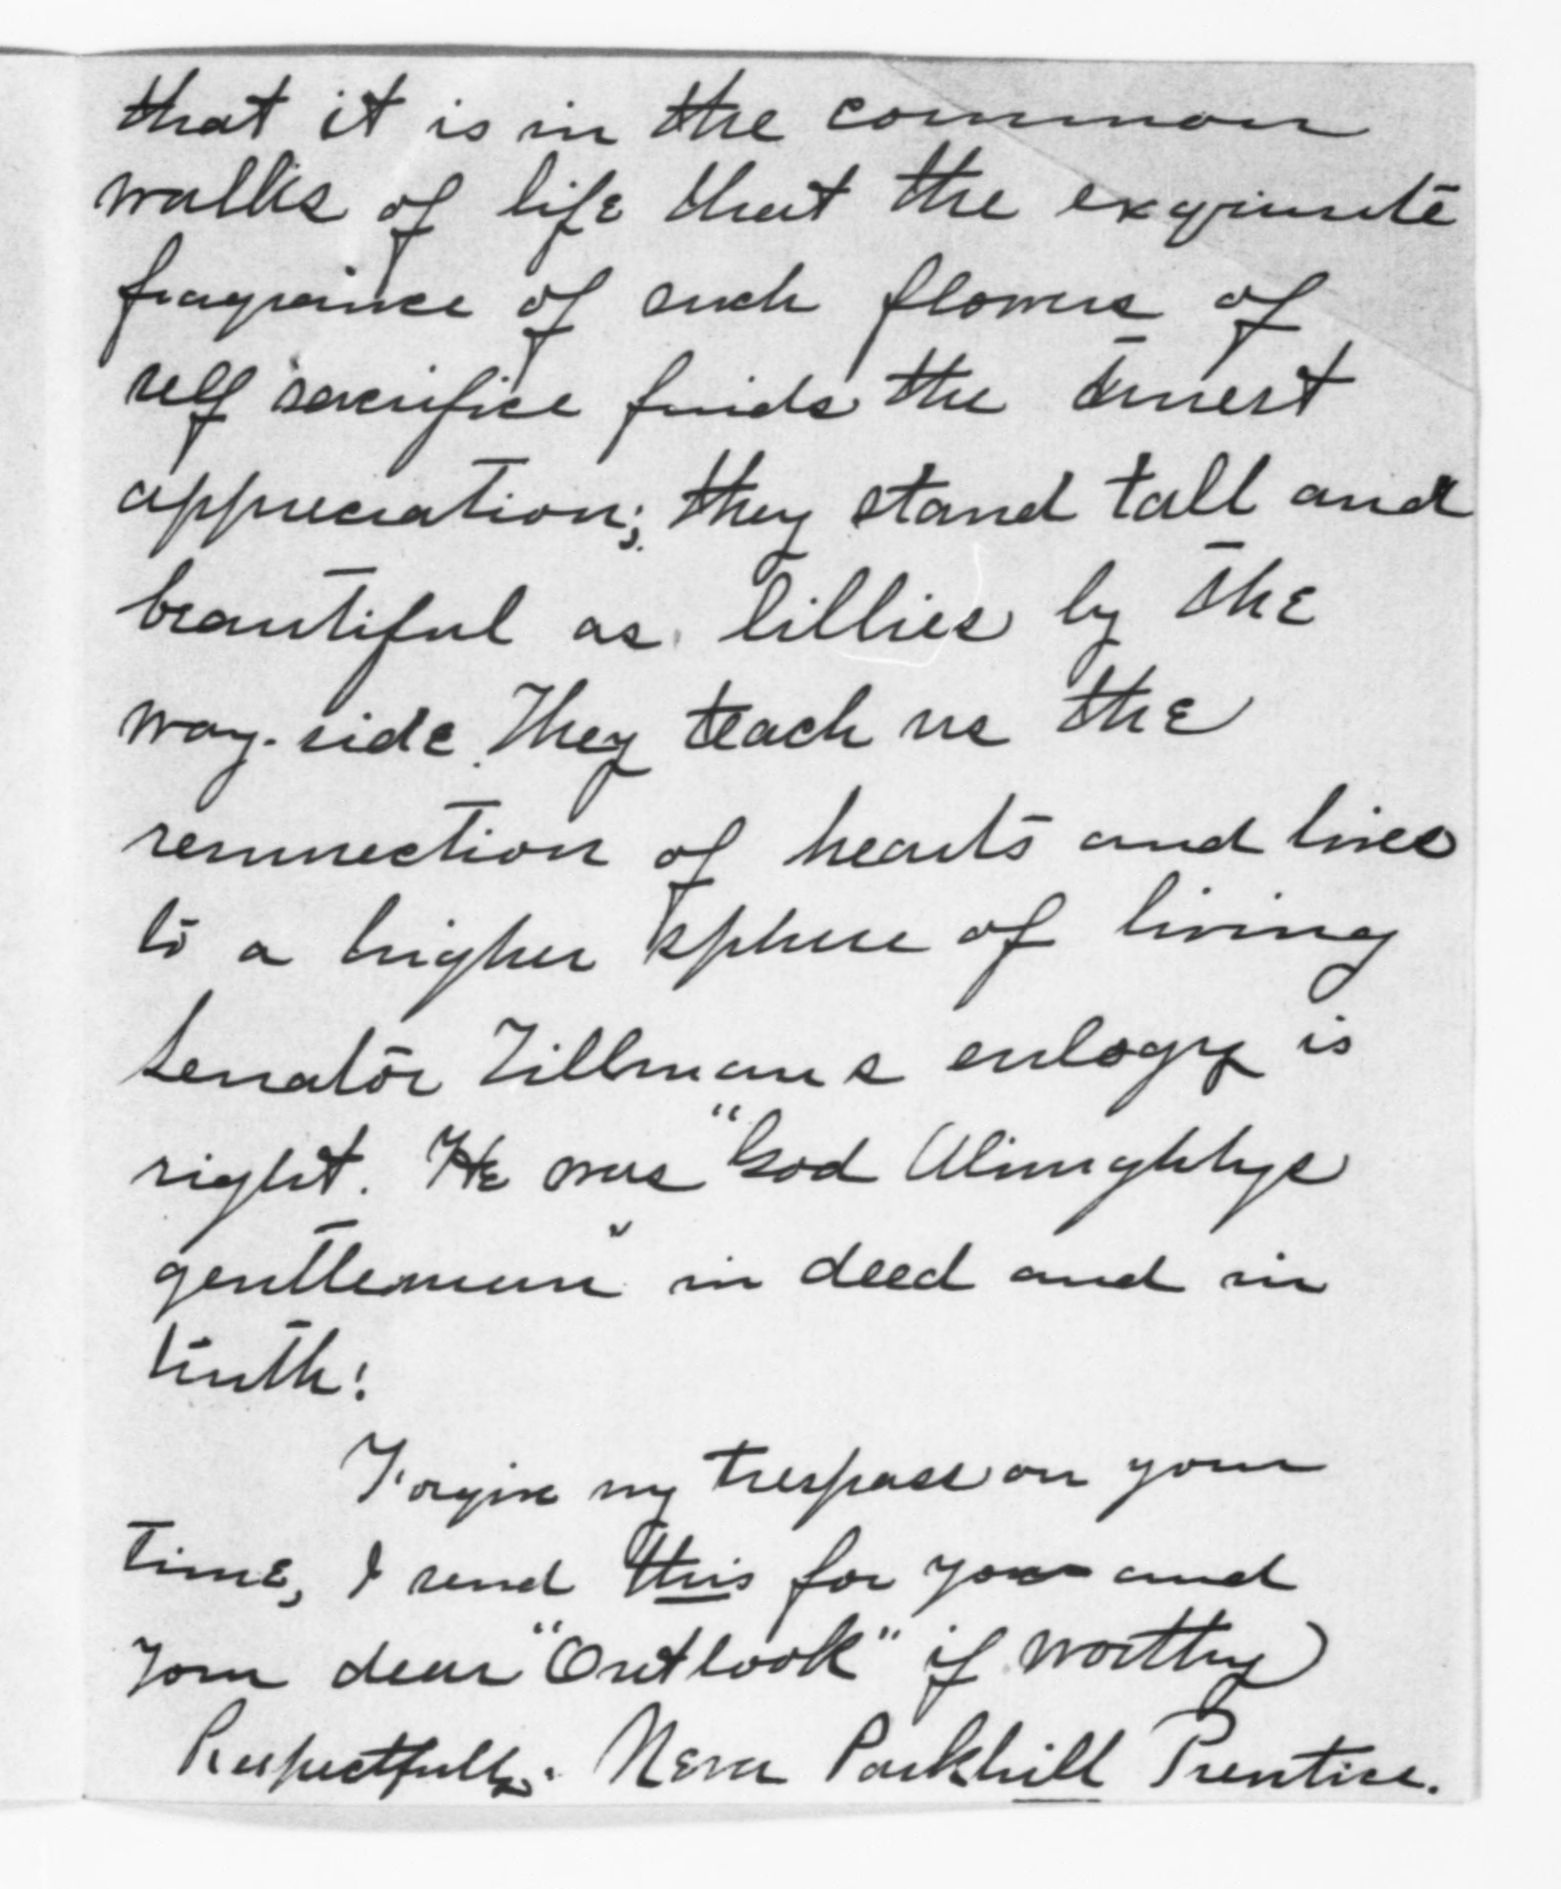 that it is in the common
walks of life that the exquisite
fragrance of such flowers of
self sacrifice finds the truest
appreciation; they stand tall and
beautiful as lillies by the
way-side. They teach us the
resurrection of hearts and lives
to a higher sphere of living
Senator Tillmans eulogy is
right. He was "God Almightys
gentleman" in deed and in
truth!
Forgive my trespass on your
time, I send this for you and
your dear "Outlook" if worthy
Respectfully. Neva Parkhill Prentice.